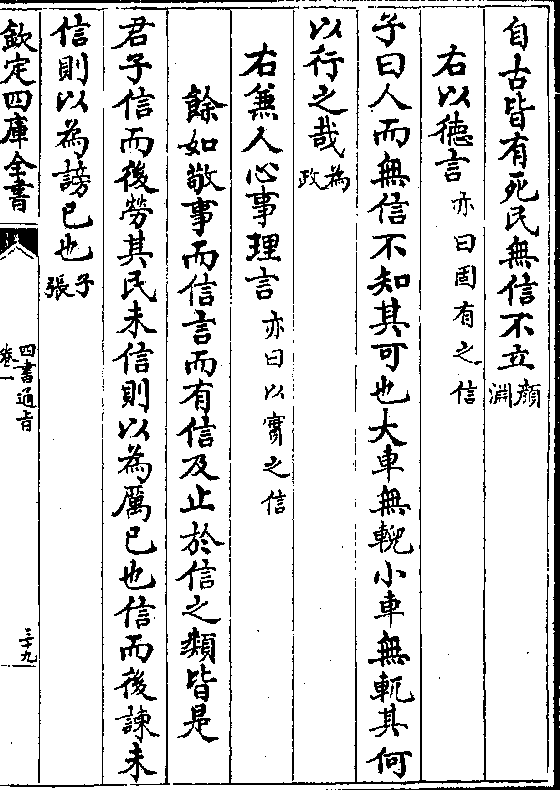 自古皆有死民無信不立顔淵
右以德言亦曰固有之信
子曰人而無信不知其可也大車無輗小車無軏其何
以行之哉為政
右兼人心事理言亦曰以實之信
餘如敬事而信言而有信及止於信之類皆是
君子信而後勞其民未信則以為厲已也信而後諫未
信則以為謗已也子張
欽定四庫全書
四書通旨
卷一
三十九